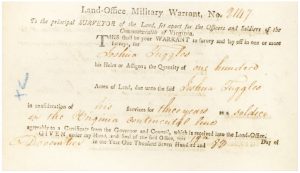 Land-Office Military Warrant, No. 2147
To the principal SURVEYOR of the Land, set apart for the Officers and Soldiers of the
Commonwealth of Virginia.
THIS shall be your WARRANT to survey and lay off in one or more
surveys, for Joshua Tuggles
his Heirs or Assigns, the Quantity of one hundred
Acres of Land, due unto the said Joshua Tuggles
in consideration of his Services for three years as a soldier
in the Virginia continental line
agreeably to a Certificate from the Governor and Council, which is received into the Land-Office.
GIVEN under my Hand, and Seal of the said Office, this
December in the Year One Thousand Seven Hundred and Day of